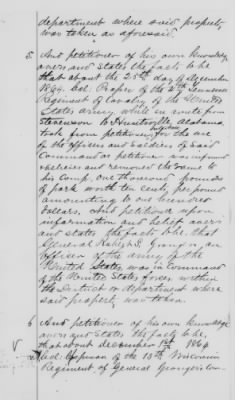 department where said property
was taken as aforesaid
5 And petitioner of his own knowledge
avers and states the facts to be,
that about the 25th day of December
1864. Col. Prosser of the 2nd Tennessee
Regiment of Cavalry of the United
States army, while in route from
Stevenson to Huntsville, Alabama
took from petitioner for the use
of the officers and soldiers of said
Command as petitioner
believes and removed the same to
his Camp, one thousand pounds
of pork worth ten cents per pound
amounting to one hundred
dollars. And petitioner upon
information and belief avers
and states the facts to be, that
General Gordon Granger, an
officer of the army of the
United States, was in command
of the United States forces within
the District or department where
said property was taken
6 And petitioner of his own knowledge
avers and states the facts to be,
that about december 1st 1864
Col. Chapman of the 13th Wisconsin
Regiment of General Granger's Com